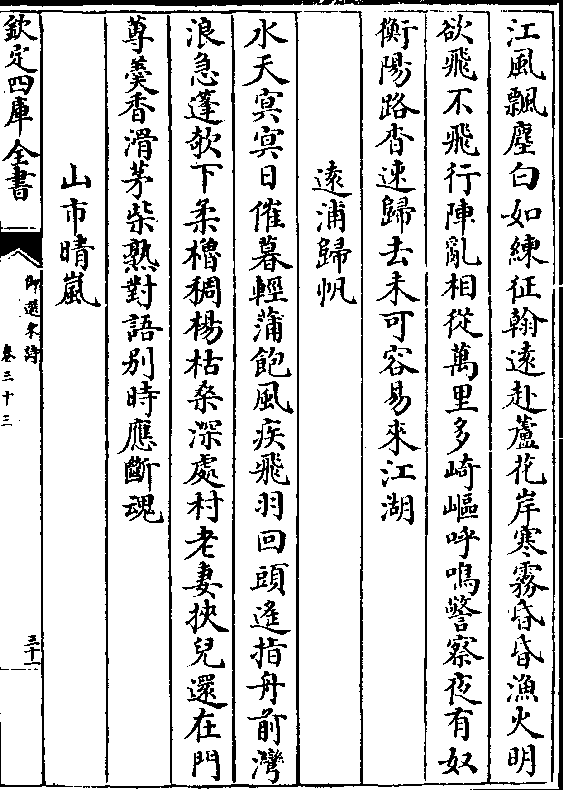 江風飄塵白如練征翰遠赴蘆花岸寒霧昏昏漁火明
欲飛不飛行陣亂相從萬里多崎嶇呼鳴警察夜有奴
衡陽路杳速歸去未可容易來江湖
遠浦歸帆
水天冥冥日催暮輕蒲飽風疾飛羽回頭遙指舟前灣
浪急蓬欹下柔櫓稠楊枯桑深處村老妻挾兒還在門
蓴羹香滑茅柴熟對語別時應斷魂
山市晴嵐
欽定四庫全書
御選宋詩
卷三十三
三十一